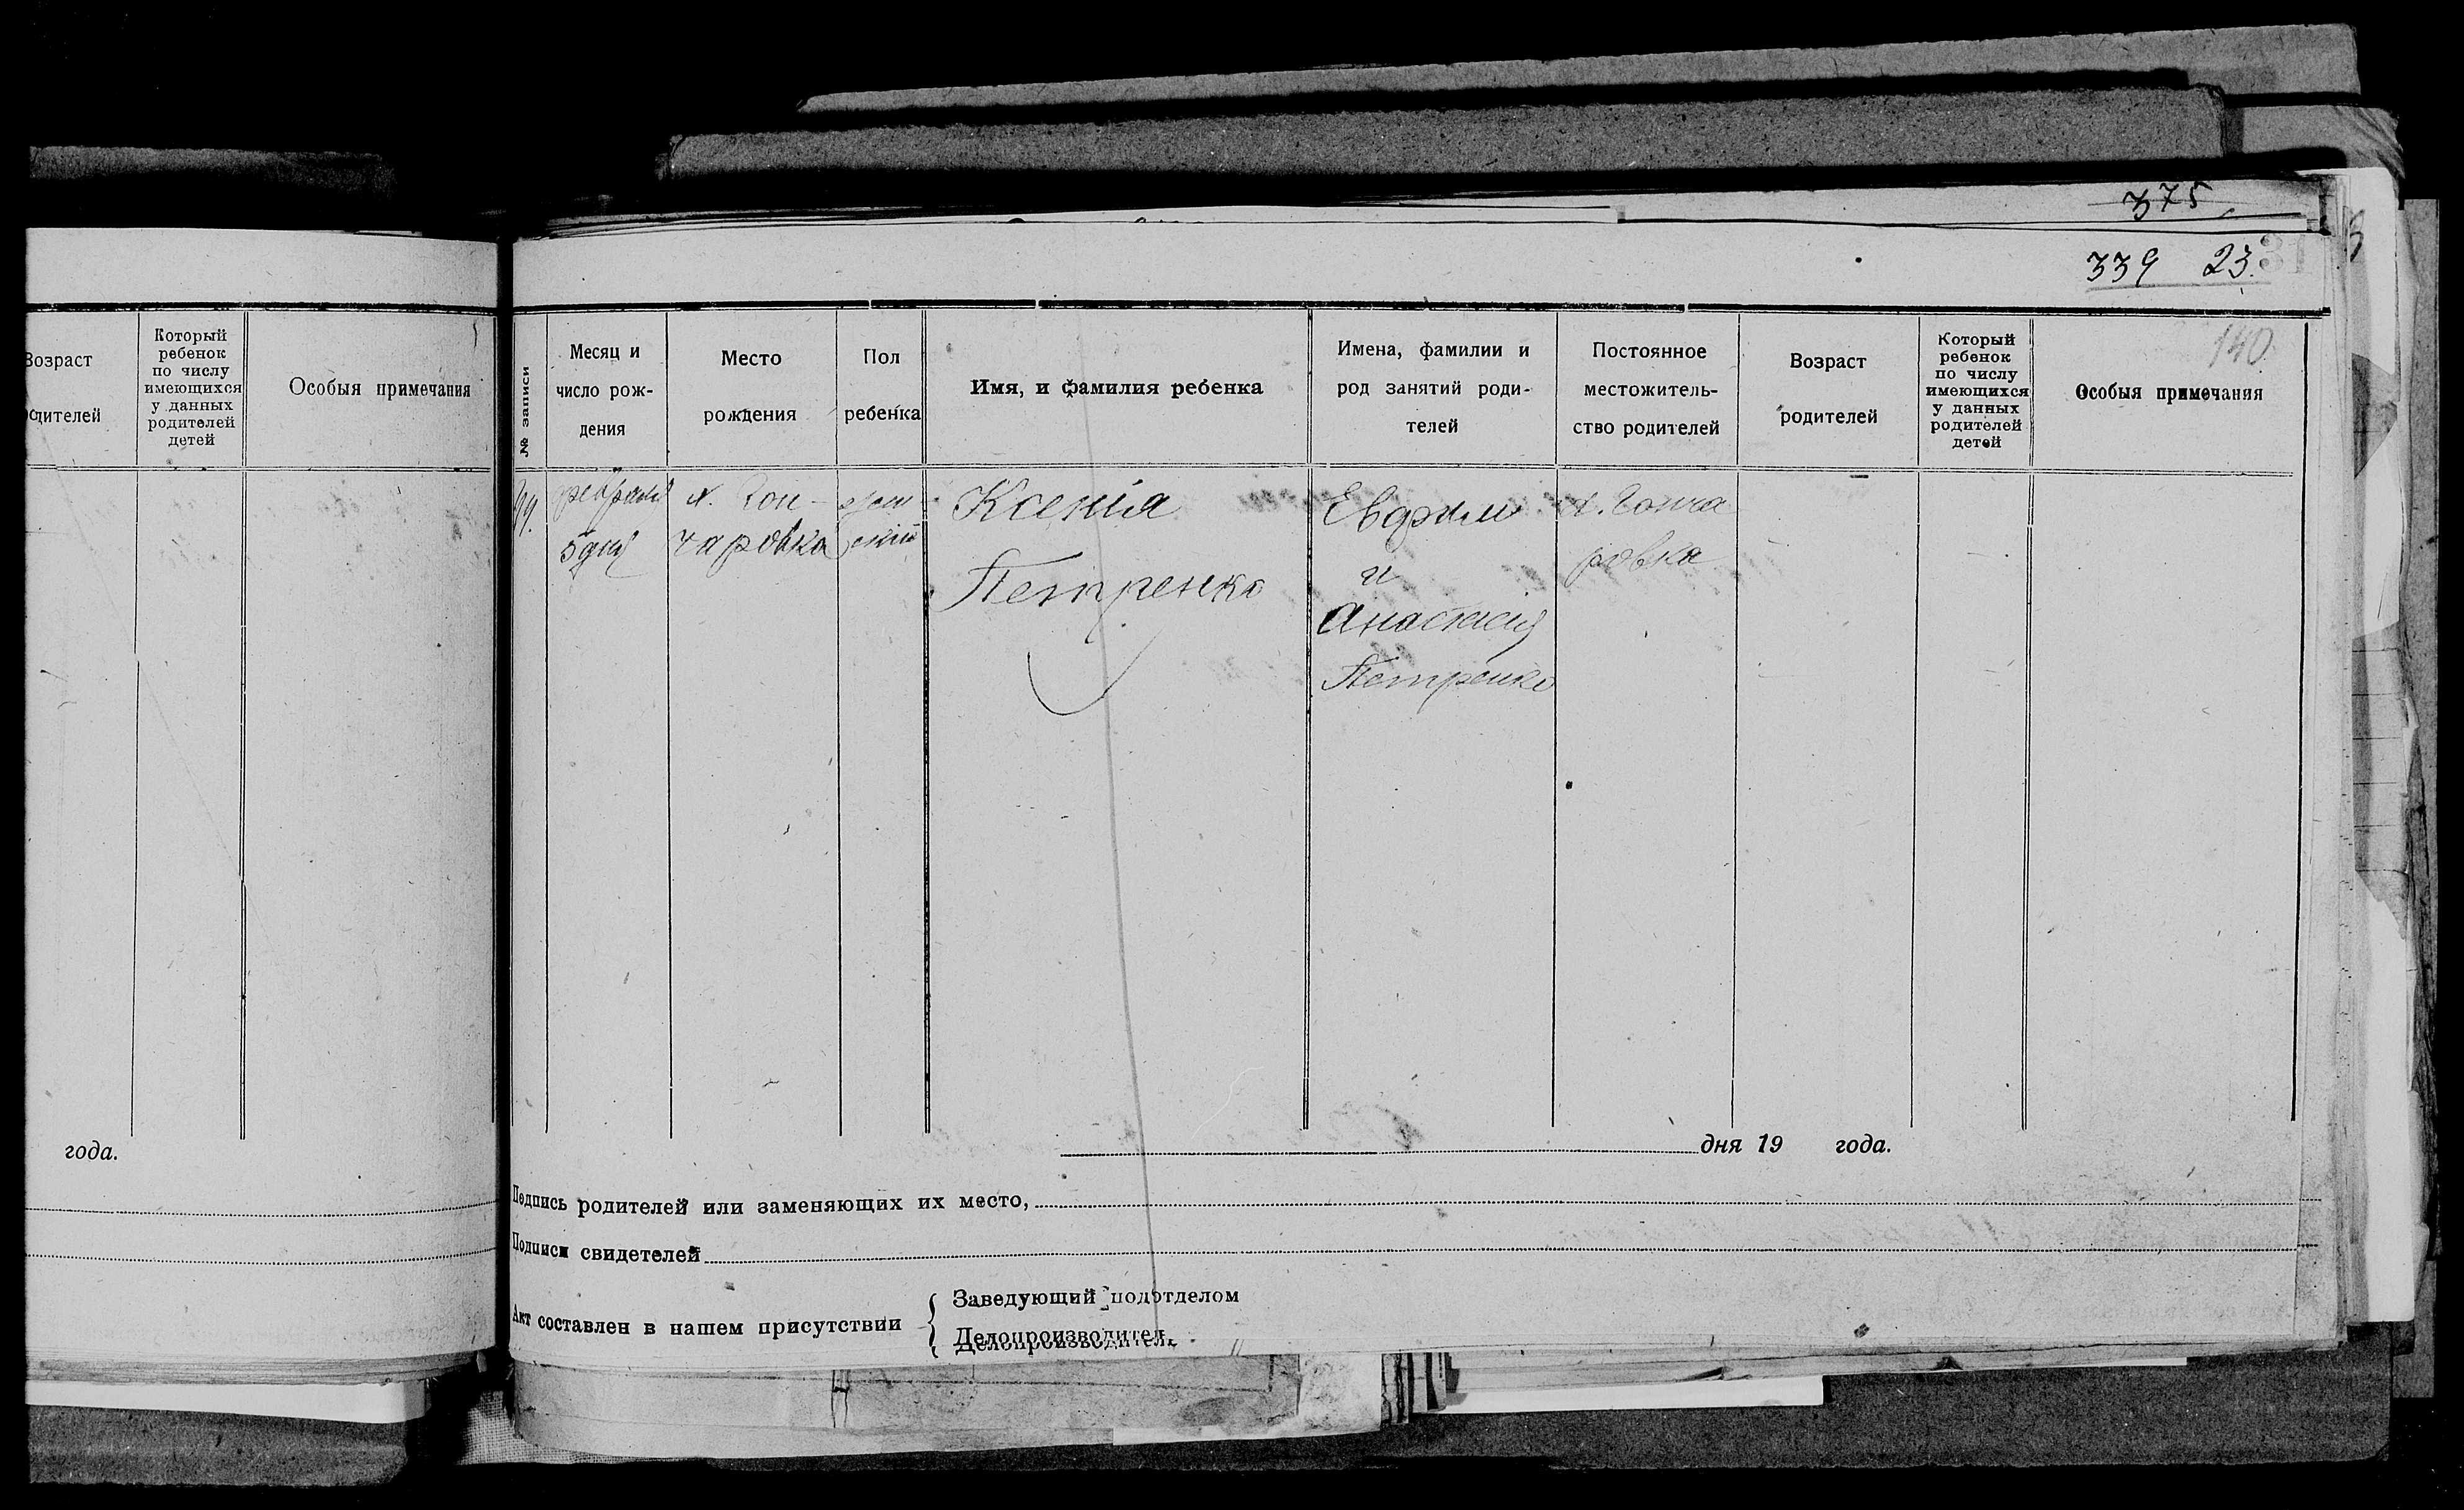 375
339 23
31
140
Возраст
родителей
Который
ребенок
по числу
имеющихся
у данных
родителей
детей
Особыя примечания
№ записи
Месяц и
число рож-
дения
Место
рождения
Пол
ребенка
Имя, и фамилия ребенка
Имена, фамилии и
род занятий роди-
телей
Постоянное
местожитель-
ство родителей
Возраст
родителей
Который
ребенок
по числу
имеющихся
у данных
родителей
детей
Особыя примечания
февраля
5 дня
х. Гон-
чаровка
жен
ский
Ксенія
Петренко
Евфим
и
Анастасія
Петренко
х. Гонча
ровка
года.
дня 19 года.
Подпись родителей или заменяющих их место,
Подписи свидетелей
Акт составлен в нашем присутствии
Заведующий подотделом
Делопроизводитель